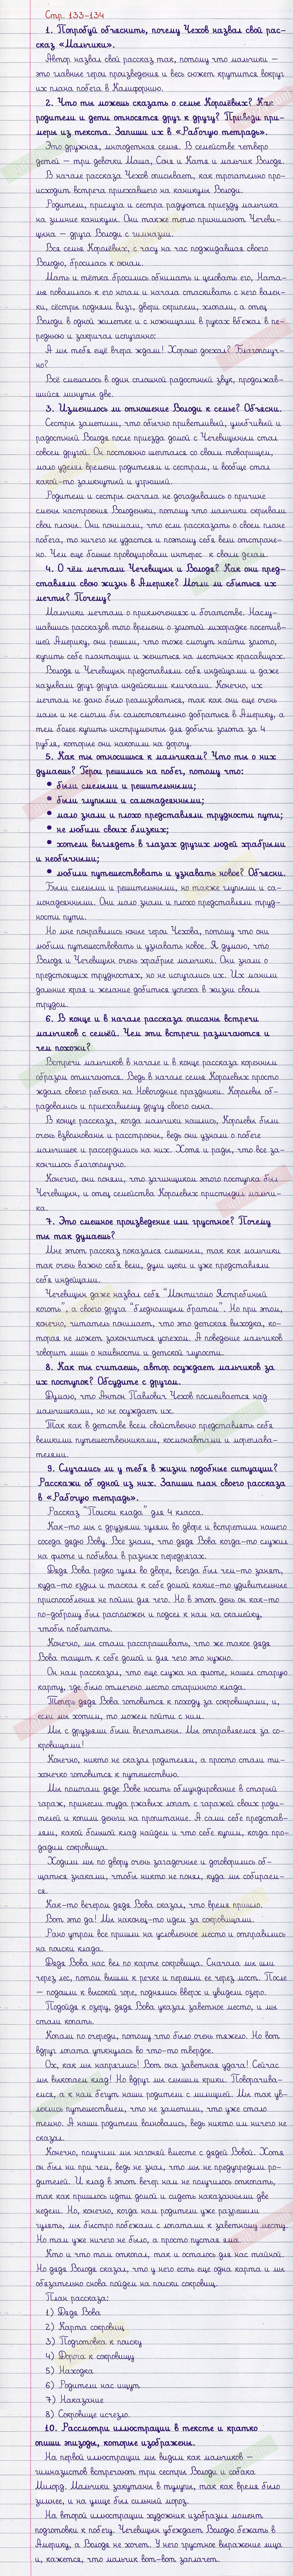 Стр. 133-134
1. Попробуй объяснить, почему Чехов назвал свой рас-
сказ «Мальчики».
Автор назвал свой рассказ так, потому что мальчики –
это главные герои произведения и весь сюжет крутится вокруг
их плана побега в Калифорнию.
2. Что ты можешь сказать о семье Королёвых? Как
родители и дети относятся друг к другу? Приведи при-
меры из текста. Запиши их в «Рабочую тетрадь».
Это дружная, многодетная семья. В семействе четверо
детей – три девочки Маша, Соня и Катя и мальчик Володя.
В начале рассказа Чехов описывает, как трепательно про-
исходит встреча приехавшего на каникулы Володи.
Родители, прислуга и сестра радуются приезду мальчика
на зимние каникулы. Они также тепло принимают Чечеви-
цына – друга Володи с гимназии.
Вся семья Королёвых, с часу на час поджидавшая своего
Володю, бросилась к окнам.
Мать и тётка бросились обнимать и целовать его, Ната-
лья повалилась к его ногам и начала стаскивать с него вален-
ки, сёстры подняли визг, двери скрипели, хлопали, а отец
Володи в одной жилетке и с ножницами в руках вбежал в пе-
реднюю и закричал испуганно:
А мы тебя ещё вчера ждали! Хорошо доехал? Благополуч-
но?
Всё смешалось в один сплошной радостный звук, продолжав-
шийся минуты две.
3. Изменилось ли отношение Володи к семье? Объясни.
Сестры заметили, что обычно приветливый, улыбчивый и
радостный Володя после приезда домой с Чечевицыным стал
совсем другой. Он постоянно шептался со своим товарищем,
мало уделял времени родителям и сестрам, и вообще стал
какой-то замкнутый и угрюмый.
Родители и сестры сначала не догадывались о причине
смены настроения Володеньки, потому что мальчики скрывали
свои планы. Они понимали, что если рассказать о своем плане
побега, то ничего не удастся и поэтому себя вели отстранен-
но. Чем еще больше провоцировали интерес к своим делам.
4. О чём мечтали Чечевицын и Володя? Как они пред-
ставляли свою жизнь в Америке? Могли ли сбыться их
мечты? Почему?
Мальчики мечтали о приключениях и богатстве. Наслу-
шавшись рассказов того времени о золотой лихорадке посетив-
шей Америку, они решили, что тоже смогут найти золото,
купить себе плантации и жениться на местных красавицах.
Володя и Чечевицын представляли себя индейцами и даже
называли друг друга индейскими кличками. Конечно, их
мечтам не дано было реализоваться, так как они еще очень
малы и не смогли бы самостоятельно добраться в Америку, а
тем более купить инструменты для добычи золота за 4
рубля, которые они накопили на дорогу.
5. Как ты относишься к мальчикам? Что ты о них
думаешь? Герои решились на побег, потому что:
• были смелыми и решительными;
• были глупыми и самонадеянными;
• мало знали и плохо представляли трудности пути;
• не любили своих близких;
• хотели выглядеть в глазах других людей храбрыми
и необычными;
• любили путешествовать и узнавать новое? Объясни.
Были смелыми и решительными, но также глупыми и са-
монадеянными. Они мало знали и плохо представляли труд-
ности пути.
Но мне понравились юные герои Чехова, потому что они
любили путешествовать и узнавать новое. Я думаю, что
Володя и Чечевицын очень храбрые мальчики. Они знали о
предстоящих трудностях, но не испугались их. Их манили
дальние края и желание добиться успеха в жизни своим
трудом.
6. В конце и в начале рассказа описаны встречи
мальчиков с семьёй. Чем эти встречи различаются и
чем похожи?
Встречи мальчиков в начале и в конце рассказа коренным
образом отличаются. Ведь в начале семья Королевых просто
ждала своего ребенка на Новогодние праздники. Королевы об-
радовались и приехавшему другу своего сына.
В конце рассказа, когда мальчики нашлись, Королевы были
очень взволнованы и расстроены, ведь они узнали о побеге
мальчишек и рассердились на них. Хотя и рады, что все за-
кончилось благополучно.
Конечно, они поняли, что зачинщиком этого поступка был
Чечевицын, и отец семейства Королевых пристыдил мальчи-
ка.
7. Это смешное произведение или грустное? Почему
ты так думаешь?
Мне этот рассказ показался смешным, так как мальчики
так очень важно себя вели, дули щеки и уже представляли
себя индейцами.
Чечевицын даже назвал себя "Монтигомо Ястребиный
коготь", а своего друга "бледнолицым братом". Но при этом,
конечно, читатель понимает, что это детская выходка, ко-
торая не может закончиться успехом. А поведение мальчиков
говорит лишь о наивности и детской глупости.
8. Как ты считаешь, автор осуждает мальчиков за
их поступок? Обсудите с другом.
Думаю, что Антон Павлович Чехов посмеивается над
мальчишками, но не осуждает их.
Так как в детстве всем свойственно представлять себя
великими путешественниками, космонавтами и мореплава-
телями.
9. Случались ли у тебя в жизни подобные ситуации?
Расскажи об одной из них. Запиши план своего рассказа
в «Рабочую тетрадь».
Рассказ "Поиски клада" для 4 класса.
Как-то мы с друзьями гуляли во дворе и встретили нашего
соседа дядю Вову. Все знали, что дядя Вова когда-то служил
на флоте и побывал в разных передрягах.
Дядя Вова редко гулял во дворе, всегда был чем-то занят,
куда-то ездил и таскал к себе домой какие-то удивительные
приспособления не пойми для чего. Но в этот день он как-то
по-доброму был расположен и подсел к нам на скамейку,
чтобы поболтать.
Конечно, мы стали расспрашивать, что же такое дядя
Вова тащит к себе домой и для чего это нужно.
Он нам рассказал, что еще служа на флоте, нашел старую
карту, где было отмечено место старинного клада.
Теперь дядя Вова готовится к походу за сокровищами, и,
если мы хотим, то можем пойти с ним.
Мы с друзьями были впечатлены. Мы отправляемся за со-
кровищами!
Конечно, никто не сказал родителям, а просто стали ти-
хонечко готовится к путешествию.
Мы помогали дяде Вове носить обмундирование в старый
гараж, принесли туда ржавых лопат с гаражей своих роди-
телей и копили деньги на пропитание. А сами себе представ-
ляли, какой большой клад найдем и что себе купим, когда про-
дадим сокровища.
Ходили мы по двору очень загадочные и договорились об-
щаться знаками, чтобы никто не понял, куда мы собираем-
ся.
Как-то вечером дядя Вова сказал, что время пришло.
Вот это да! Мы наконец-то идем за сокровищами.
Рано утром все пришли на условленное место и отправились
на поиски клада.
Дядя Вова нас вел по карте сокровища. Сначала мы шли
через лес, потом вышли к речке и перешли ее через мост. После
– подошли к высокой горе, поднялись вверх и увидели озеро.
Подойдя к озеру, дядя Вова указал заветное место, и мы
стали копать.
Копали по очереди, потому что было очень тяжело. Но вот
вдруг лопата уткнулась во что-то твердое.
Ох, как мы напряглись! Вот она заветная удача! Сейчас
мы выкопаем клад! Но вдруг мы слышим крики. Поворачива-
емся, а к нам бегут наши родители с милицией. Мы так ув-
леклись путешествием, что не заметили, что уже стало
темно. А наши родители волновались, ведь никто им ничего не
сказал.
Конечно, получили мы нагоняй вместе с дядей Вовой. Хотя
он был ни при чем, ведь не знал, что мы не предупредили ро-
дителей. И клад в этот вечер нам не получилось откопать,
так как пришлось идти домой и сидеть наказанными две
недели. Но, конечно, когда нам родители уже разрешили
гулять, мы быстро побежали с лопатами к заветному месту.
Но там уже ничего не было, а просто пустая яма.
Кто и что там откопал, так и осталось для нас тайной.
Но дядя Володя сказал, что у него есть еще одна карта и мы
обязательно снова пойдем на поиски сокровищ.
План рассказа:
1) Дядя Вова
2) Карта сокровищ
3) Подготовка к поиску
4) Дорога к сокровищу
5) Находка
6) Родители нас ищут
7) Наказание
8) Сокровище исчезло.
10. Рассмотри иллюстрации в тексте и кратко
опиши эпизоды, которые изображены.
На первой иллюстрации мы видим как мальчиков –
гимназистов встречают три сестры Володи и собака
Милорд. Мальчики закутаны в тулупы, так как время было
зимнее, и на улице был сильный мороз.
На второй иллюстрации художник изобразил момент
подготовки к побегу. Чечевицын убеждает Володю бежать в
Америку, а Володя не хочет. У него грустное выражение лица
и, кажется, что мальчик вот-вот заплачет.